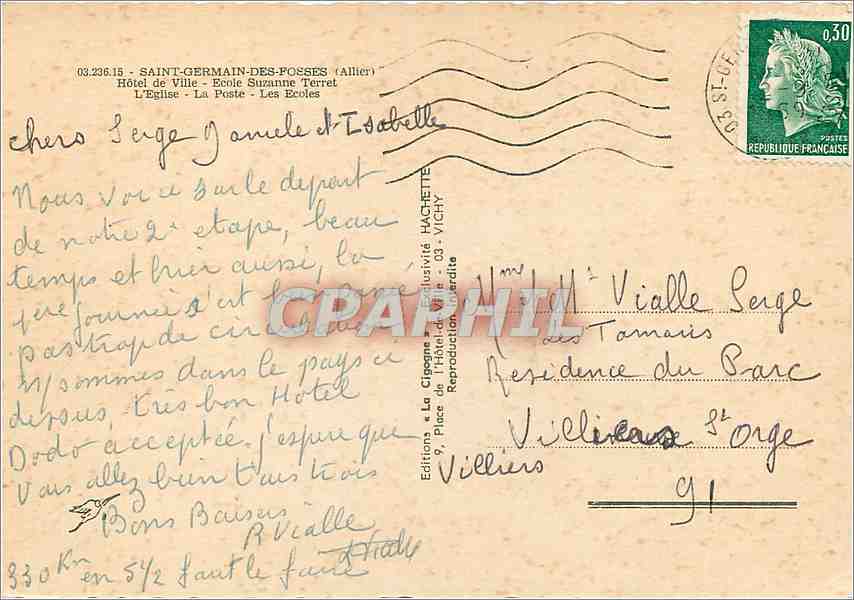 03.236.15 - SAINT-GERMAIN-DES-FOSSES (Allier)
Hôtel de Ville - Ecole Suzanne Terret
L'Eglise - La Poste - Les Ecoles
chers Serge Daniele et Isabelle
Nous voici sur le depart
de notre 2e etape, beau
temps et hier aussi, la
1ere journée s'est bien
pas trop de
n/ sommes dans le pays ci
dessus, très bon Hotel
Dodo acceptée. j'espere que
Vous allez bien t/ous trois
Bons Baisers
R Vialle
330 Km en 5 1/2 faut le faire
Editions « La Cigogne » Exclusivité HACHETTE
9, Place de l'Hôtel-de-Ville - 03 - VICHY
Reproduction interdite
CPAPHIL
03 ST-GE
0,30
POSTES
REPUBLIQUE FRANÇAISE
Mme & Mr Vialle Serge
Les Tamaris
Residence du Parc
St Orge
Villiers
91